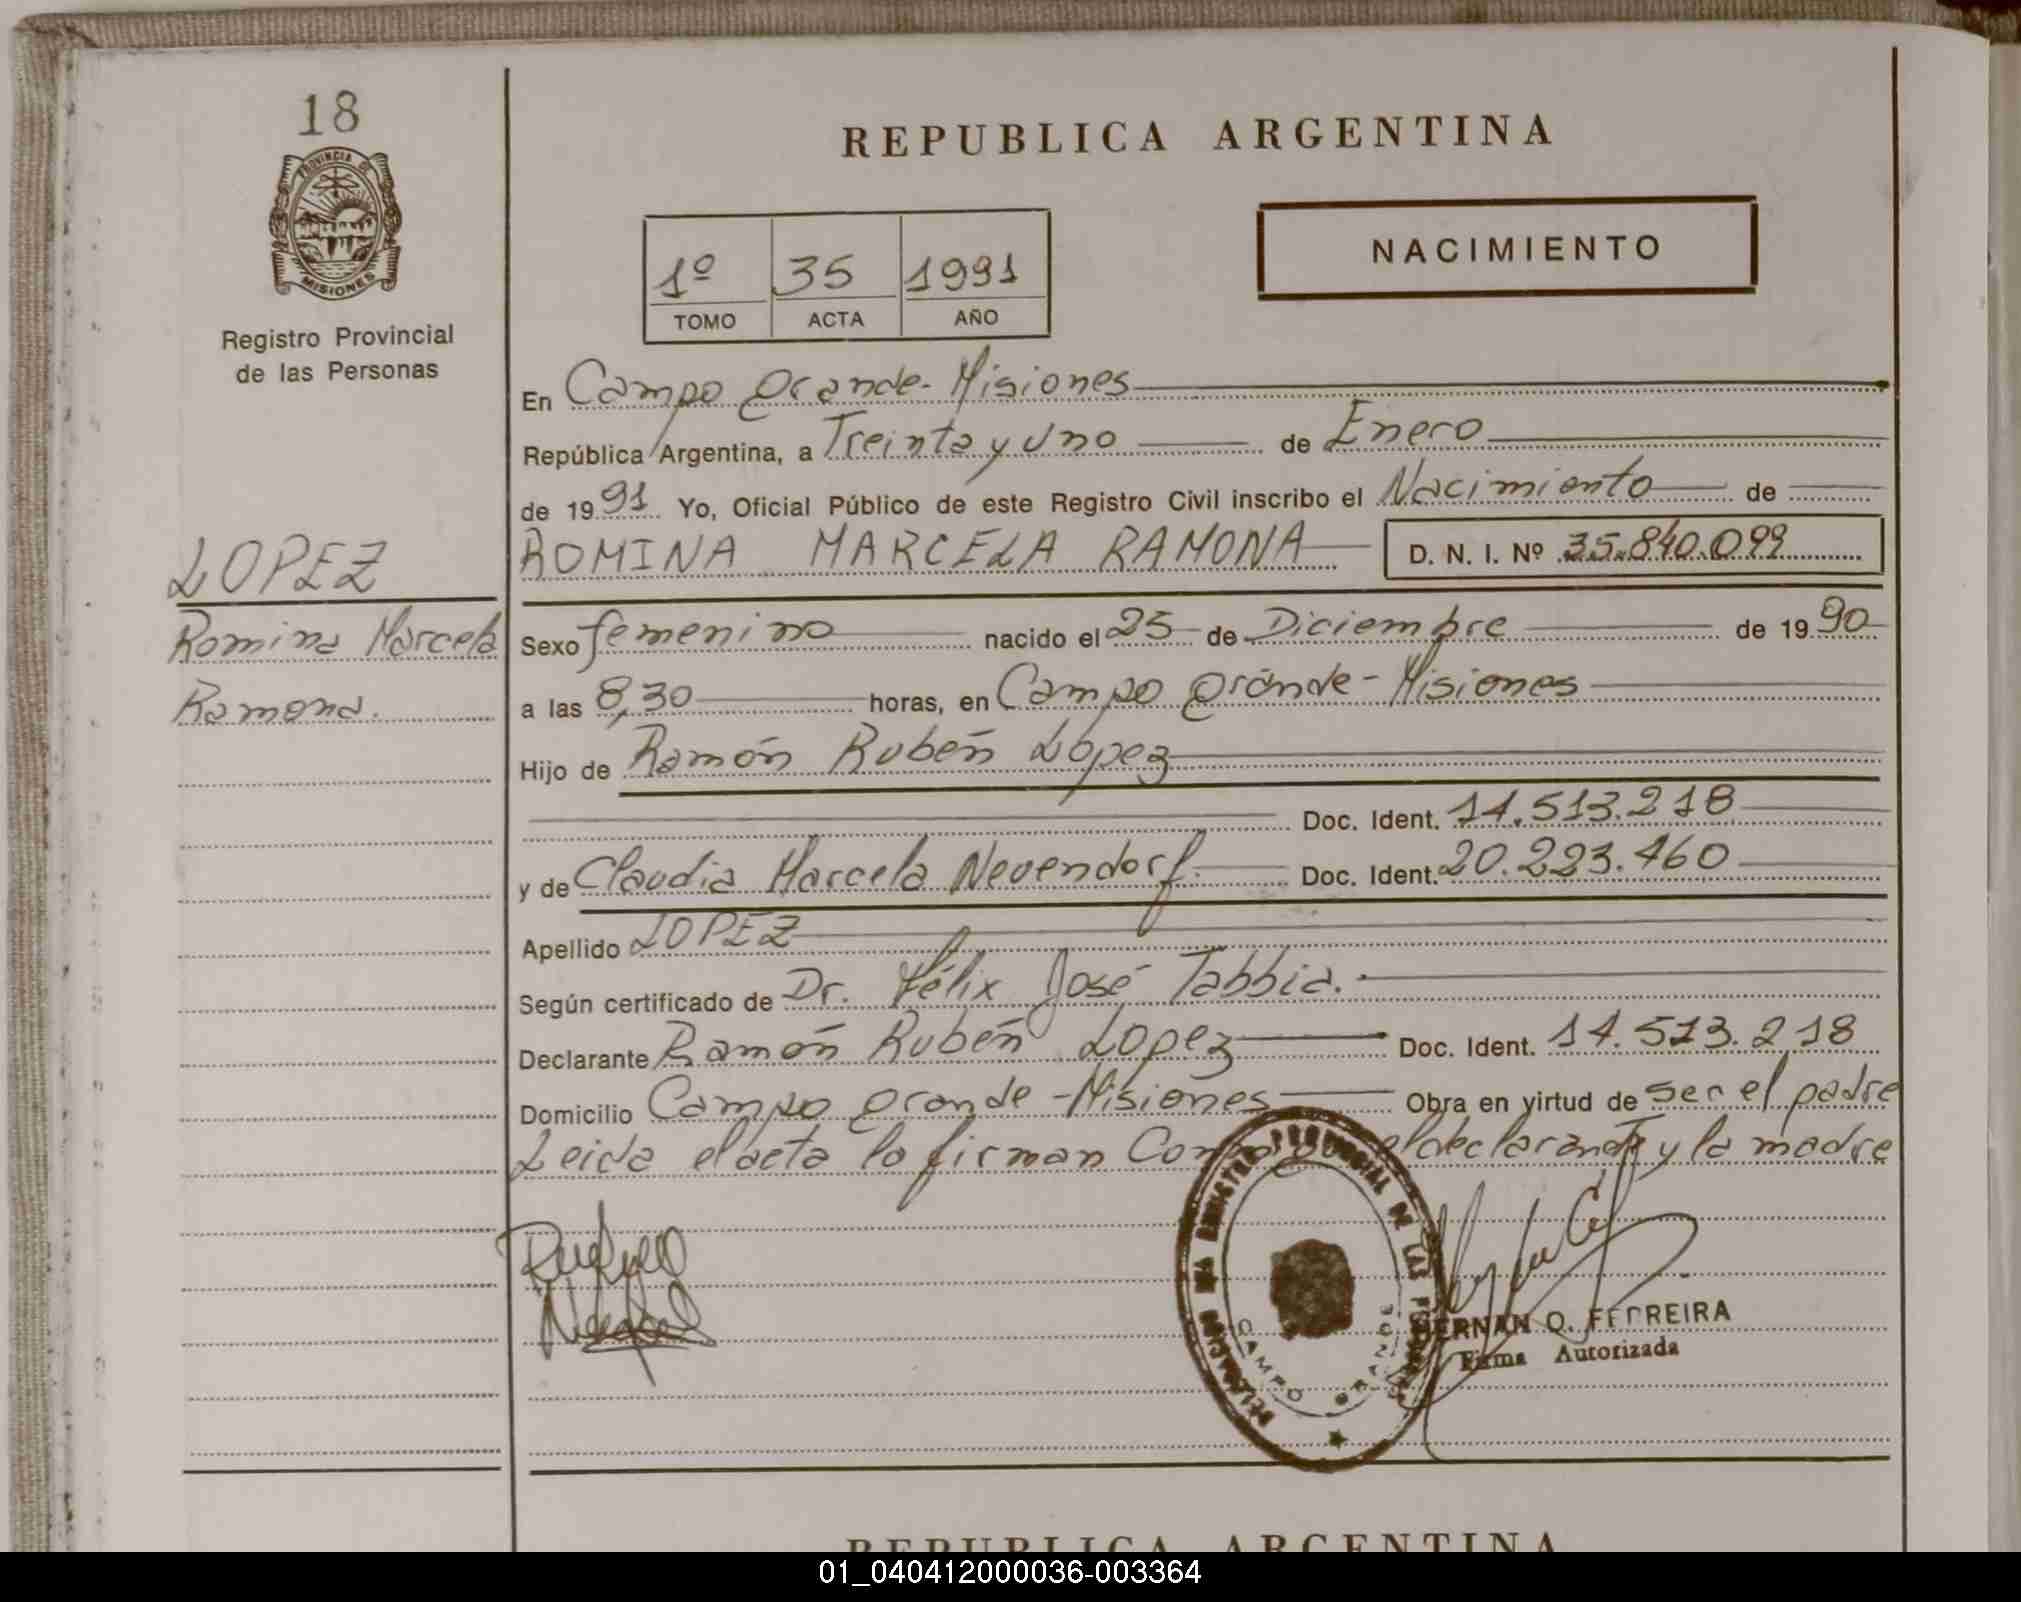 18
PROVINCIA DE
MISIONES
Registro Provincial
de las Personas
REPUBLICA ARGENTINA
1º 35 1991
TOMO ACTA AÑO
NACIMIENTO
En Campo Grande - Misiones
República Argentina, a Treinta y Uno de Enero
de 1991 Yo, Oficial Público de este Registro Civil inscribo el Nacimiento de
ROMINA MARCELA RAMONA D. N. I. Nº 35.840.099
LOPEZ
Romina Marcela
Ramona.
Sexo femenino nacido el 25 de Diciembre de 1990
a las 8,30 horas, en Campo Grande - Misiones
Hijo de Ramón Rubén Lopez
Doc. Ident. 14.513.218
y de Claudia Marcela Neuendorf. Doc. Ident. 20.223.460
Apellido LOPEZ
Según certificado de Dr. Félix José Tabbia.
Declarante Ramón Rubén Lopez Doc. Ident. 14.513.218
Domicilio Campo Grande - Misiones Obra en virtud de ser el padre
Leida el acta la firman el declarante y la madre
REGISTRO PROVINCIAL DE LAS
CAMPO GRANDE
HERNAN O. FERREIRA
Firma Autorizada
REPUBLICA ARGENTINA
01_040412000036-003364